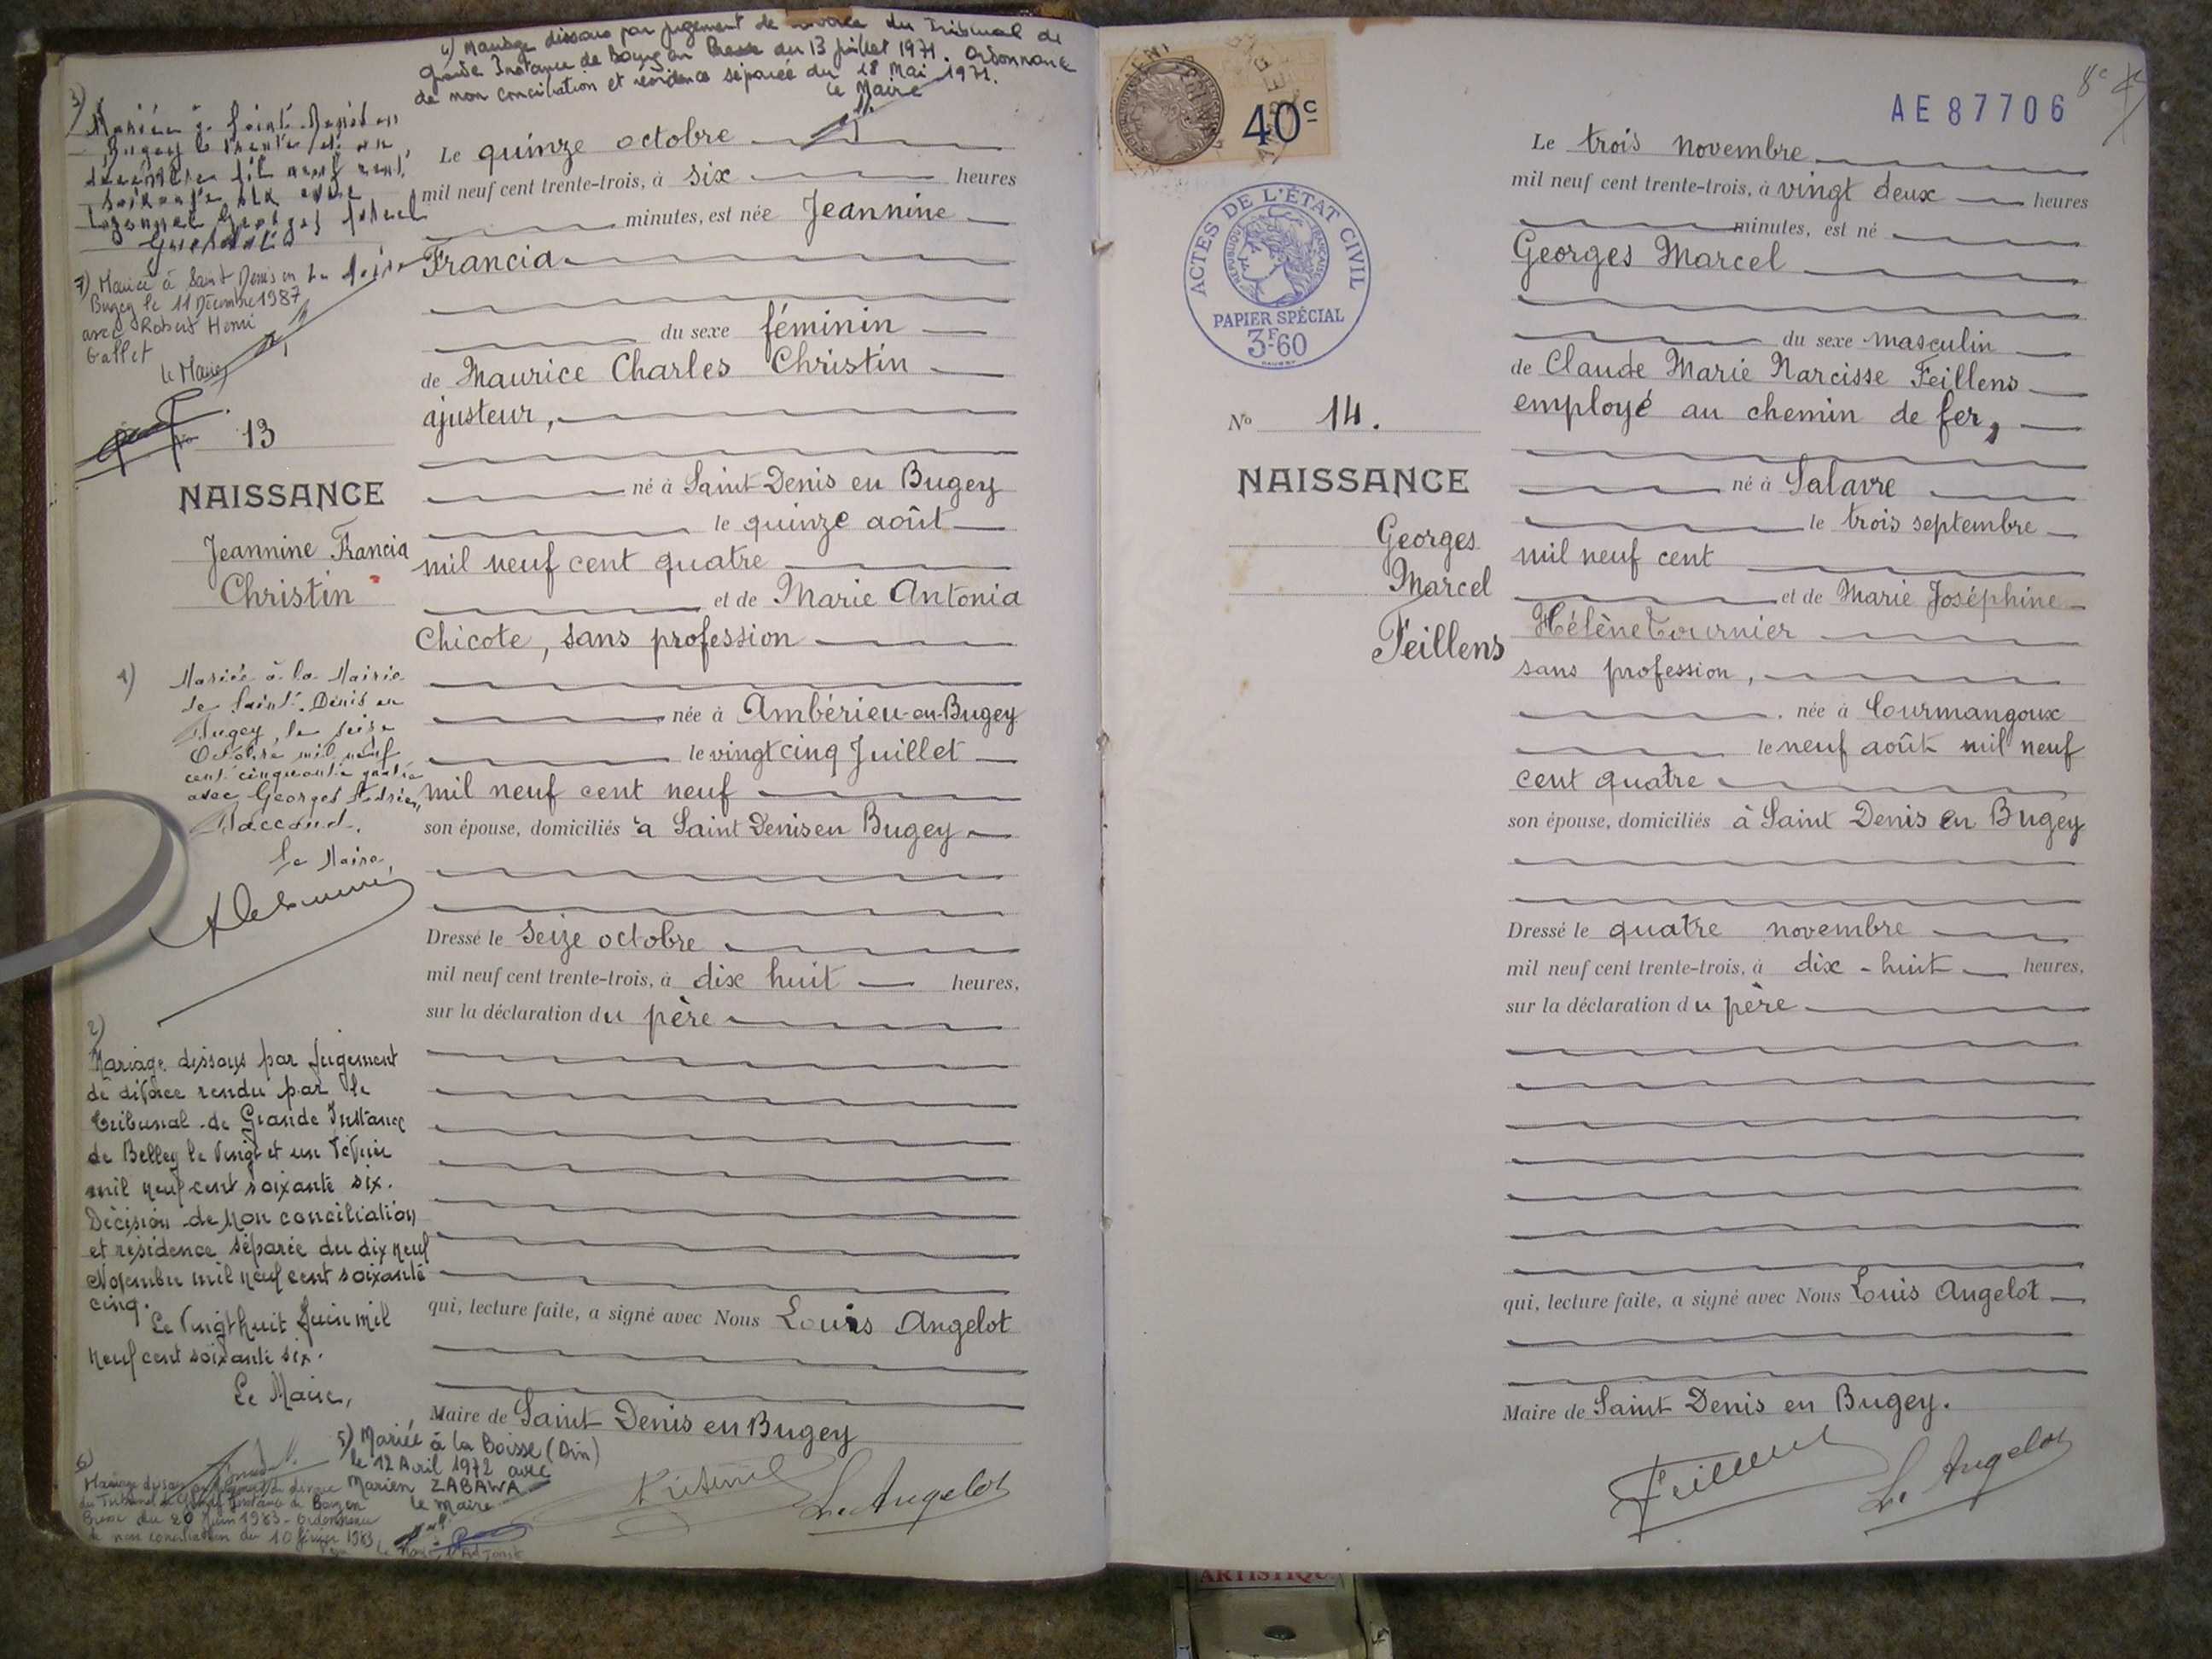 4) Mariage dissous par jugement de divorce du Tribunal de
Grande Instance de Bourg en Bresse du 13 juillet 1971. Ordonnance
de non conciliation et résidence séparée du 18 Mai 1971.
Le Maire
3)
Mariée à Saint-Denis en
Bugey le trente et un
décembre mil neuf cent
soixante six avec
Georges
7) Mariée à Saint Denis en
Bugey le 11 Décembre 1987
avec Robert Henri
Gallet
Le Maire
No 13
NAISSANCE
Jeannine Francia
Christin
1)
Mariée à la Mairie
de Saint-Denis en
Bugey, le seize
Octobre mil neuf
cent cinquante quatre
avec Georges
Le Maire,
2)
Mariage dissous par Jugement
de divorce rendu par le
Tribunal de Grande Instance
de Belley le Vingt et un Février
mil neuf cent soixante six.
Décision de Non conciliation
et résidence séparée du dix neuf
Novembre mil neuf cent soixante
cinq.
Le Vingt huit Juin mil
neuf cent soixante six.
Le Maire,
5) Mariée à la Boisse (Ain)
le 12 Avril 1972 avec
Marien ZABAWA
le Maire
6)
Mariage dissous par Jugement de divorce
du Tribunal de Grande Instance de Bourg en
Bresse du 20 Juin 1983 - Ordonnance
de non conciliation du 10 février 1983
Le quinze octobre
mil neuf cent trente-trois, à six heures
minutes, est née Jeannine
Francia
du sexe féminin
de Maurice Charles Christin
ajusteur,
né à Saint-Denis en Bugey
le quinze août
mil neuf cent quatre
et de Marie Antonia
Chicote, sans profession
née à Ambérieu-en-Bugey
le vingt cinq Juillet
mil neuf cent neuf
son épouse, domiciliés à Saint Denis en Bugey
Dressé le seize octobre
mil neuf cent trente-trois, à dix huit heures,
sur la déclaration du père
qui, lecture faite, a signé avec Nous Louis Angelot
Maire de Saint Denis en Bugey
L. Angelot
40c
AE 87706
8e
ACTES DE L'ÉTAT CIVIL
RÉPUBLIQUE FRANÇAISE
PAPIER SPÉCIAL
3F60
No 14.
NAISSANCE
Georges
Marcel
Feillens
Le trois novembre
mil neuf cent trente-trois, à vingt deux heures
minutes, est né
Georges Marcel
du sexe masculin
de Claude Marie Narcisse Feillens
employé au chemin de fer,
né à Salavre
le trois septembre
mil neuf cent
et de Marie Joséphine
Hélène Tournier
sans profession,
née à Courmangoux
le neuf août mil neuf
cent quatre
son épouse, domiciliés à Saint Denis en Bugey
Dressé le quatre novembre
mil neuf cent trente-trois, à dix-huit heures,
sur la déclaration du père
qui, lecture faite, a signé avec Nous Louis Angelot
Maire de Saint Denis en Bugey.
Feillens
L. Angelot
ARTISTIQU